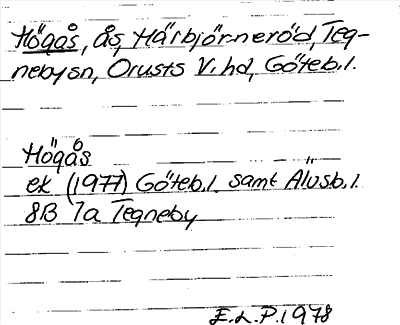 Högås, ås, Härbjörneröd, Teg-
nebysn, Orusts V. hd, Göteb. l.
Högås
ek (1977) Göteb. l. samt Älvsb. l.
8B 7a Tegneby
E. L. P. 1978